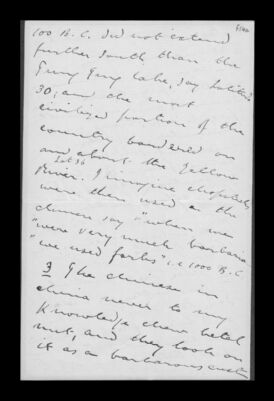 100 B.C. did not extend
further South than the
lake, say latitude
30, and the most
civilized portion of the
country bordered on
and about the Yellow
Lat 36
River. I imagine chopsticks
were then used as the
chinese say "when we
"were very much barbaria
"we used forks" i.e 1000 B.C
3 The chinese in
china never to my
Knowledge chew betel
nut, and they look on
it as a barbarous custom